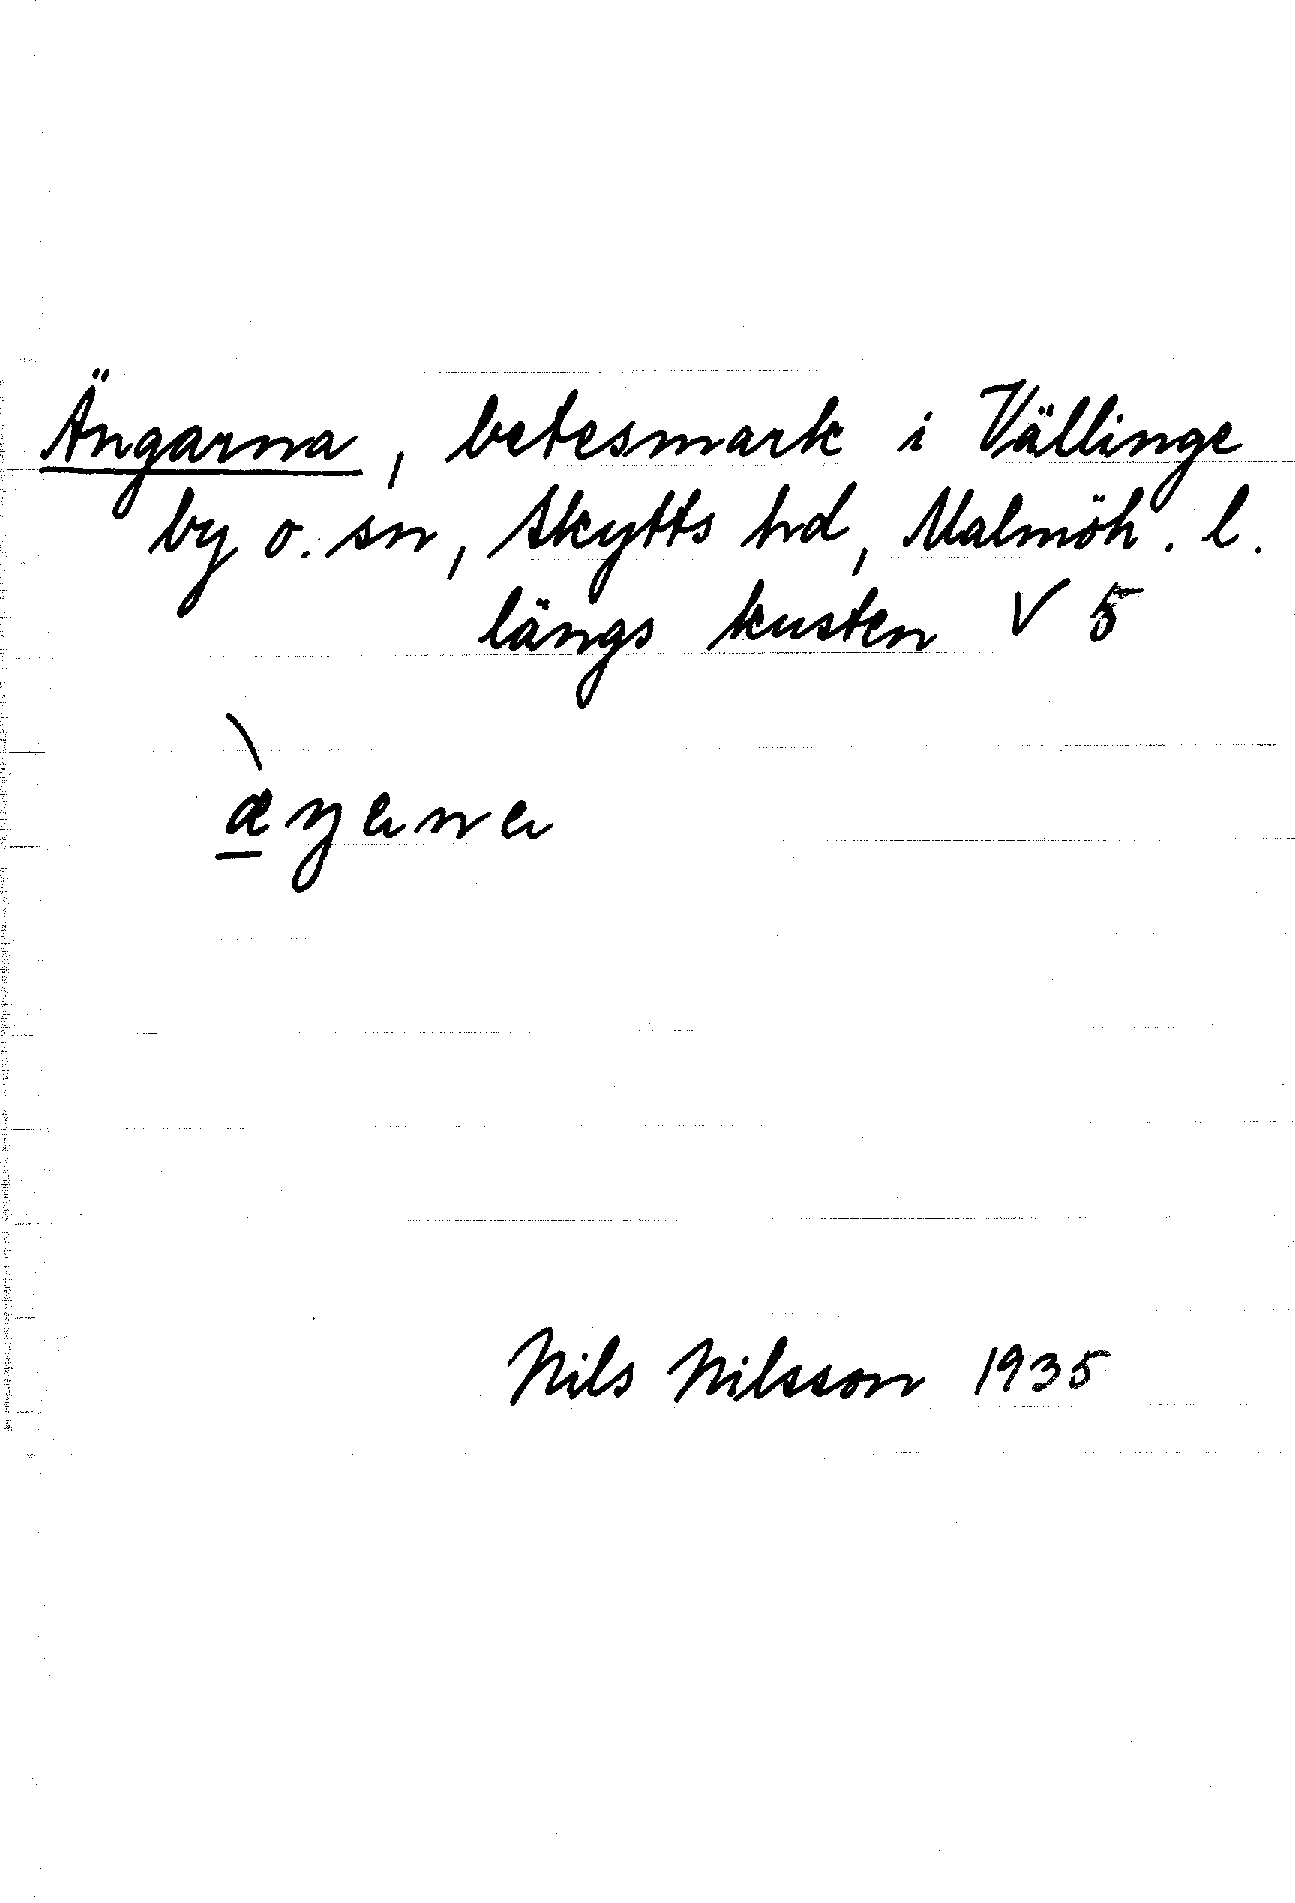 Ängarna, betesmark i Vällinge
by o. sn, Skytts hd, Malmöh. l.
längs kusten V 5
æ̀ŋana
Nils Nilsson 1935